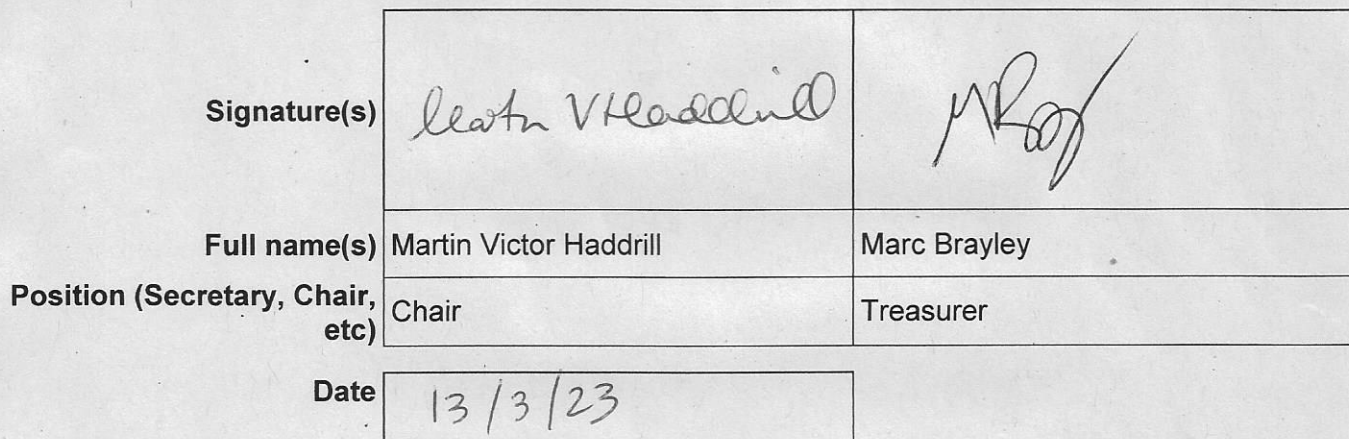 Signature(s) Martin V Haddrill
Full name(s) Martin Victor Haddrill Marc Brayley
Position (Secretary, Chair, etc) Chair Treasurer
Date 13/3/23